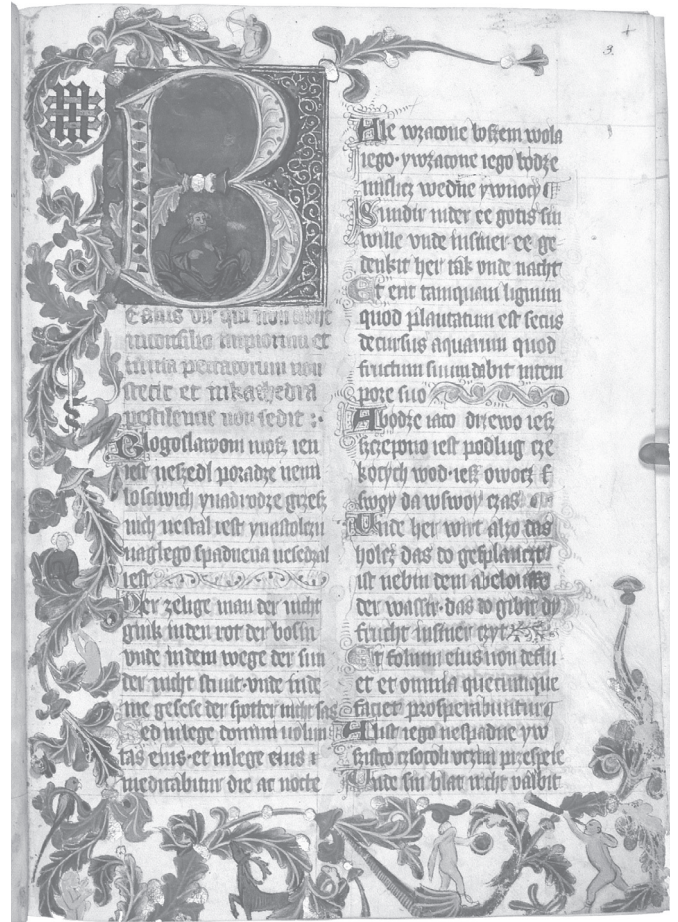 3.
B
Eatus vir qui non abijt
inconsilio impiorum et
inuia peccatorum non
stetit et inkathedra
pestilencie non sedit :·
Blogoslawoni mosz ien
iest neszedl poradze nemi
losciwich ynadrodze grzesz
nich nestal iest ynastolczu
naglego spadnena nesedzal
iest
Der zelige man der nicht
gink inden rot der bosin
vnde indem wege der sun
der nicht stunt·vnde inde
me gesese der spotter nicht sas
Sed inlege domini volun
tas eius·et inlege eius
meditabitur die ac nocte
Ale wzacone boszem wola
iego·ywzacone iego bodze
mislicz wedne ywnocy
Sundir nider ee gotis sin
wille vnde insiner ee ge
denkit her tak vnde nacht
Et erit tamquam lignum
quod plantatum est secus
decursus aquarum quod
fructum suum dabit intem
pore suo
Abodze iaco drzewo iesz
szczepono iest podlug cze
kocych wod·iesz owocz
swoy da wswoy czas
Unde her wirt alzo das
holcz das do gesplanczit
ist nebin dem abeloufte
der wassir·das do gibit dy
frucht insiner czyt
Et folium eius non deflu
et et omnia quecumque
faciet prosperabuntur
A list iego nespadne yw
szistco czsocoli vczini przespeie
Unde sin blat nicht valbit